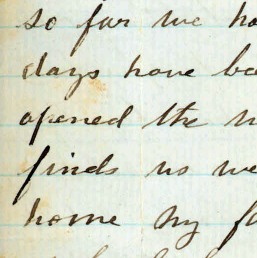 so far we ha
days have be
opened the
finds us we
home my fa